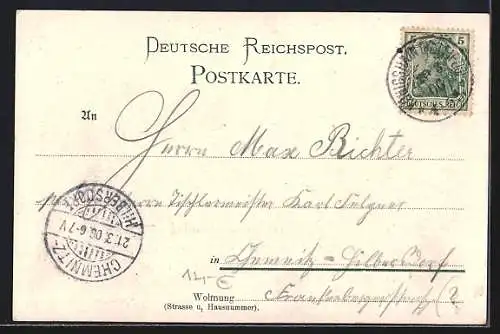 DEUTSCHE REICHSPOST.
POSTKARTE.
5 5
DEUTSCHES REICH
An
Herrn Max Richter
Herrn Tischlermeister Karl
in Chemnitz-Hilbersdorf
12,- €
Wohnung
(Strasse u. Hausnummer).
CHEMNITZ-
21.3.06.6-7V
HILBERSDORF